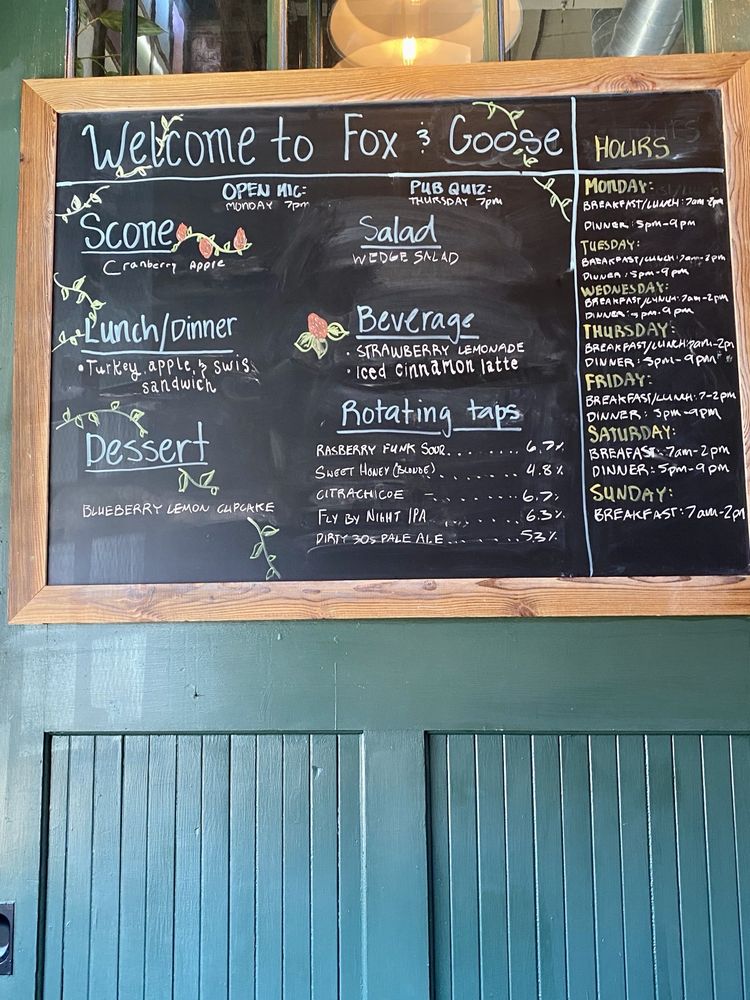 Welcome to Fox & Goose
OPEN MIC:
MONDAY 7pm
PUB QUIZ:
THURSDAY 7pm
Scone
Cranberry Apple
Salad
WEDGE SALAD
Lunch/Dinner
• Turkey, apple, & swis
sandwich
Beverage
• STRAWBERRY LEMONADE
• Iced cinnamon latte
Dessert
BLUEBERRY LEMON CUPCAKE
Rotating taps
RASBERRY FUNK SOUR........ 6.7%
SWEET HONEY (BLONDE) ....... 4.8%
CITRACHICOE - ........ 6.7%
FLY BY NIGHT IPA ........ 6.3%
DIRTY 30s PALE ALE ........ 53%
HOURS
MONDAY:
BREAKFAST/LUNCH: 7am-2pm
DINNER: 5pm-9pm
TUESDAY:
BREAKFAST/LUNCH: 7am-2pm
DINNER: 5pm-9pm
WEDNESDAY:
BREAKFAST/LUNCH: 7am-2pm
DINNER: 5pm-9pm
THURSDAY:
BREAKFAST/LUNCH: 7am-2pm
DINNER: 5pm-9pm
FRIDAY:
BREAKFAST/LUNCH: 7-2pm
DINNER: 5pm-9pm
SATURDAY:
BREAFAST: 7am-2pm
DINNER: 5pm-9pm
SUNDAY:
BREAKFAST: 7am-2pm